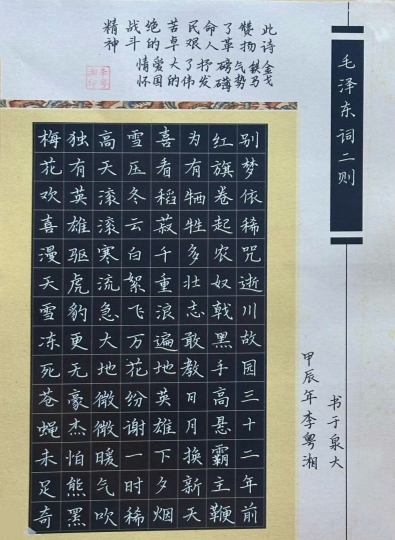 毛泽东词二则
此诗赞扬了革命人民艰苦卓绝的战斗精神
金戈铁马气势磅礴抒发了伟大的爱国情怀
别梦依稀咒逝川故园三十二年前
红旗卷起农奴戟黑手高悬霸主鞭
为有牺牲多壮志敢教日月换新天
喜看稻菽千重浪遍地英雄下夕烟
雪压冬云白絮飞万花纷谢一时稀
高天滚滚寒流急大地微微暖气吹
独有英雄驱虎豹更无豪杰怕熊黑
梅花欢喜漫天雪冻死苍蝇未足奇
书于泉大
甲辰年李粤湘